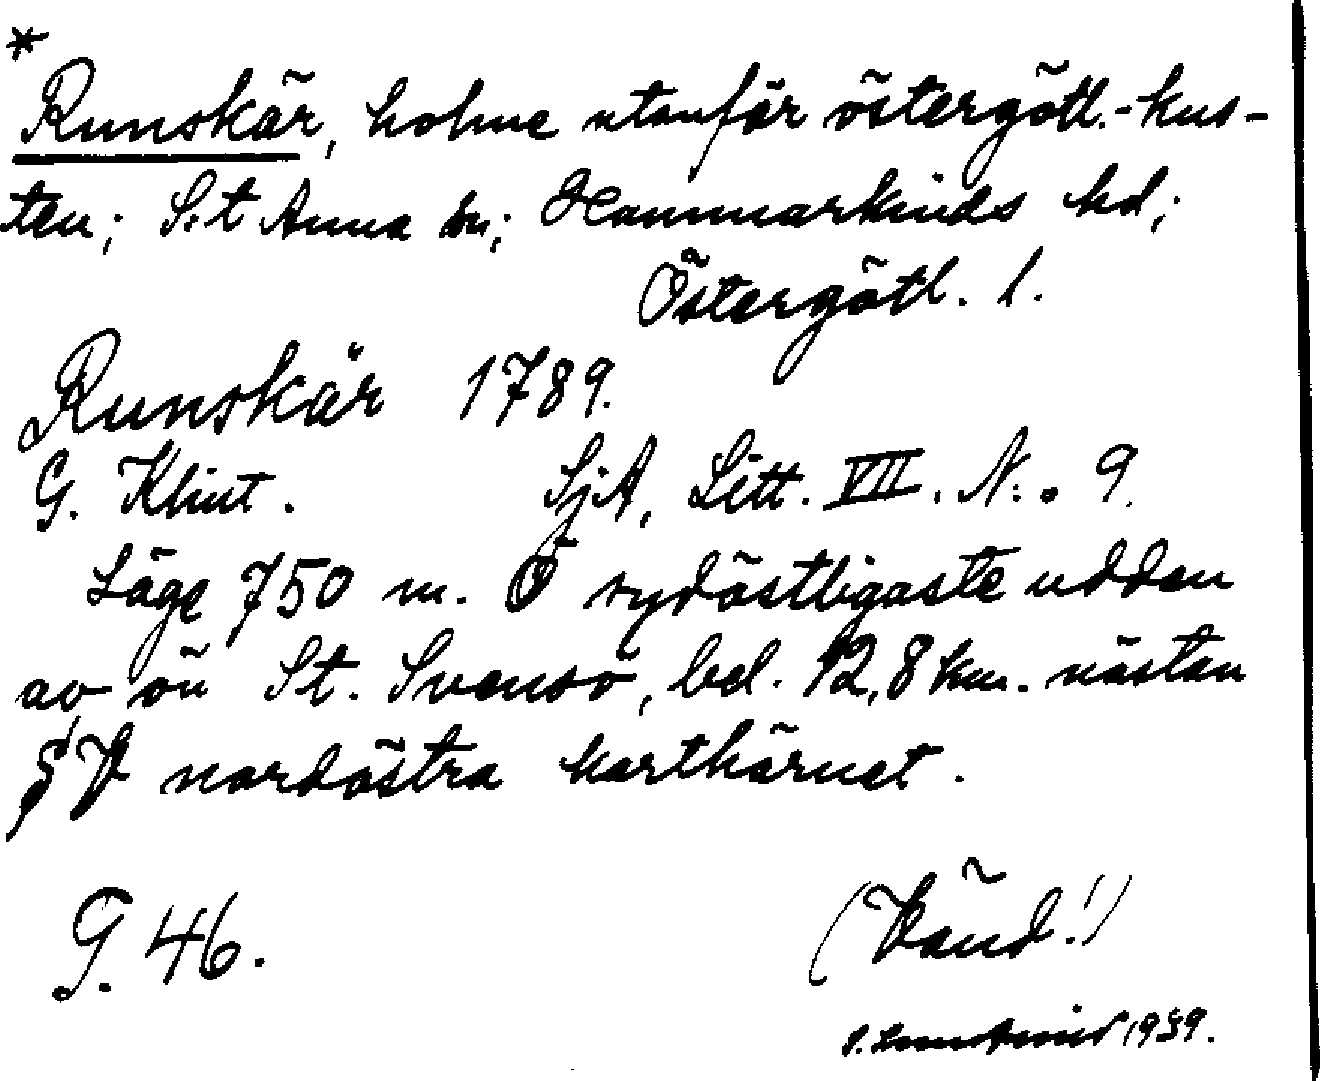 *
Runskär, holme utanför östergötl.-kus-
ten; S:t Anna sn; Hammarkinds hd;
Östergötl. l.
Runskär 1789.
G. Klint. SjA, Litt. VII. N:o 9.
Läge 750 m. Ö sydöstligaste udden
av ön St. Svensö, bel. 12,8 km. nästan
V nordöstra karthörnet.
G. 46. (Vänd!)
1939.